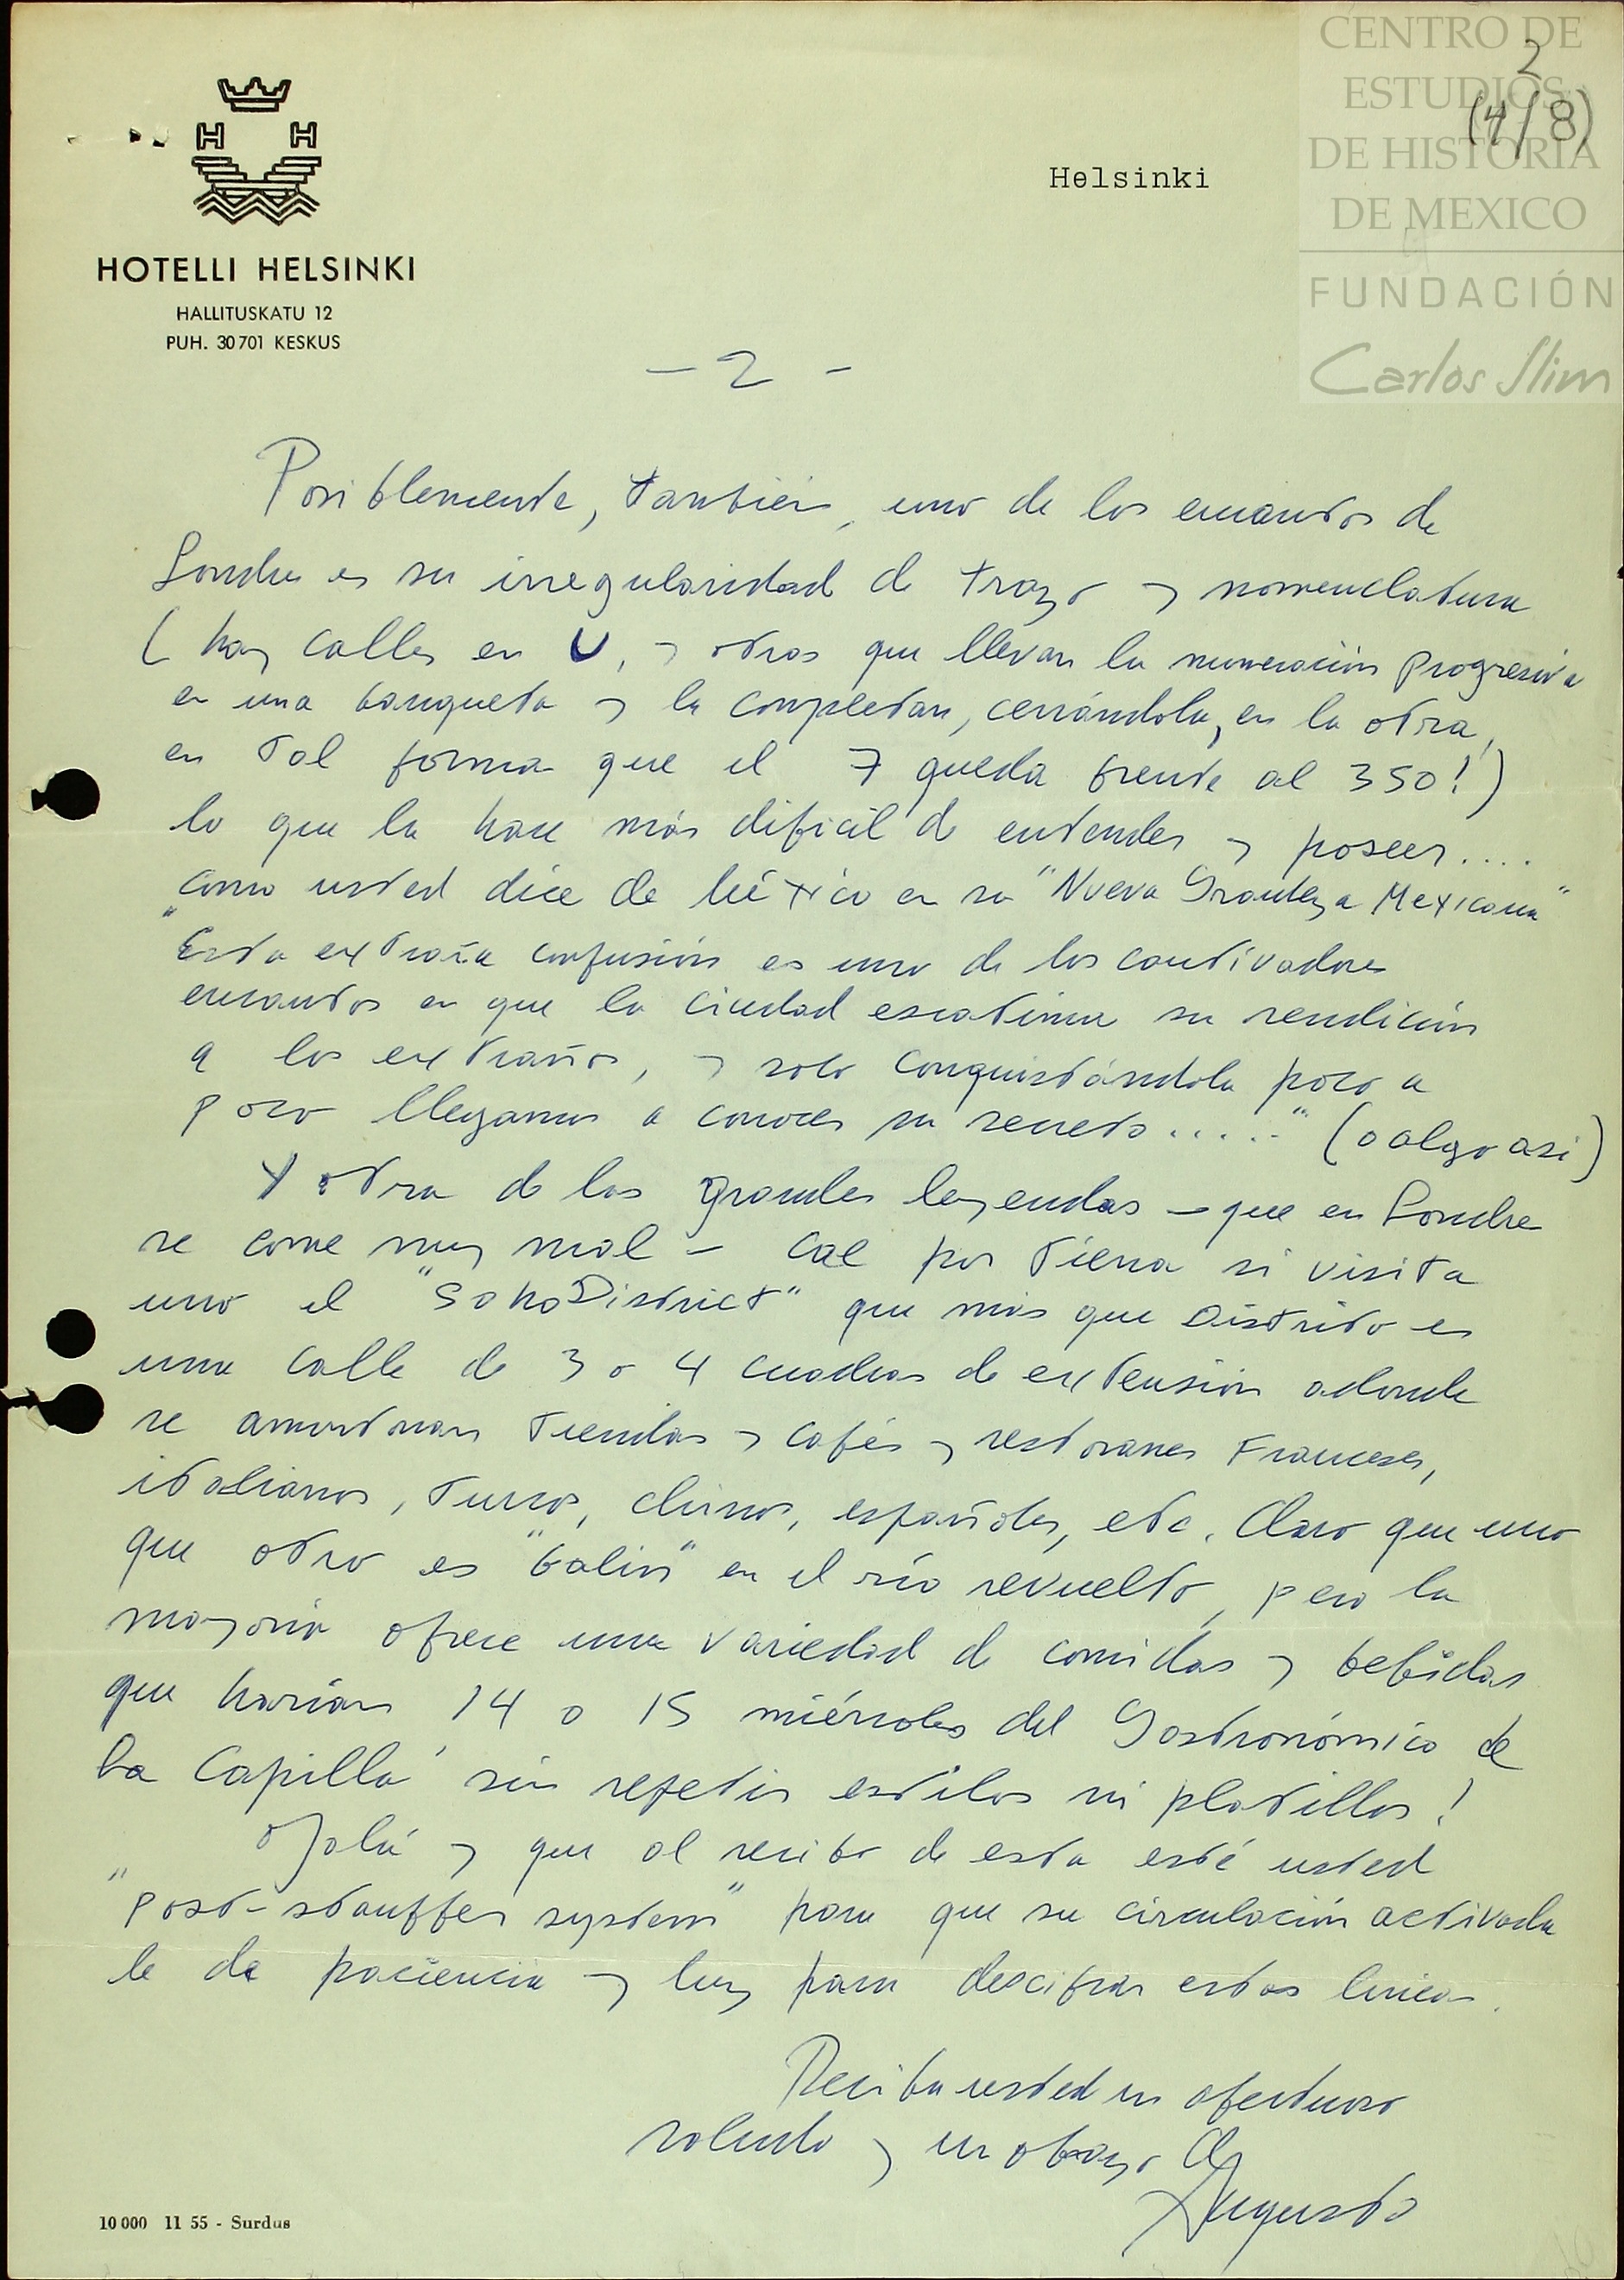 CENTRO DE
ESTUDIOS
DE HISTORIA
DE MEXICO
FUNDACIÓN
Carlos Slim
2
(4/8)
Helsinki
HOTELLI HELSINKI
HALLITUSKATU 12
PUH. 30701 KESKUS
- 2 -
Posiblemente, también, uno de los encantos de
Londres es su irregularidad de trazo y nomenclatura
( hay calles en U, y otras que llevan la numeración progresiva
en una banqueta y la completan, cerrándola, en la otra,
en tal forma que el 7 queda frente al 350!)
lo que la hace más dificil de entender y poseer....
como usted dice de México en su "Nueva Grandeza Mexicana"
"Esta extraña confusión es uno de los cautivadores
encantos en que la ciudad escatima su rendición
a los extraños, y solo conquistándola poco a
poco llegamos a conocer su secreto....." (o algo asi)
Y otra de las grandes leyendas - que en Londres
se come muy mal - cae por tierra si visita
uno el "Soho District" que más que Distrito es
una calle de 3 o 4 cuadras de extensión adonde
se amontonan tiendas y cafés y restoranes Franceses,
italianos, turcos, chinos, españoles, etc. Claro que uno
que otro es "balín" en el río revuelto, pero la
mayoría ofrece una variedad de comidas y bebidas
que harían 14 o 15 miércoles del Gastronómico de
La Capilla sin repetir estilos ni platillos!
Ojalá y que al recibo de esta esté usted
"post-stauffer system" para que su circulación activada
le de paciencia y luz para descifrar estas lineas.
Reciba usted un afectuoso
saludo y un abrazo de
Augusto
10 000 11 55 - Surdus